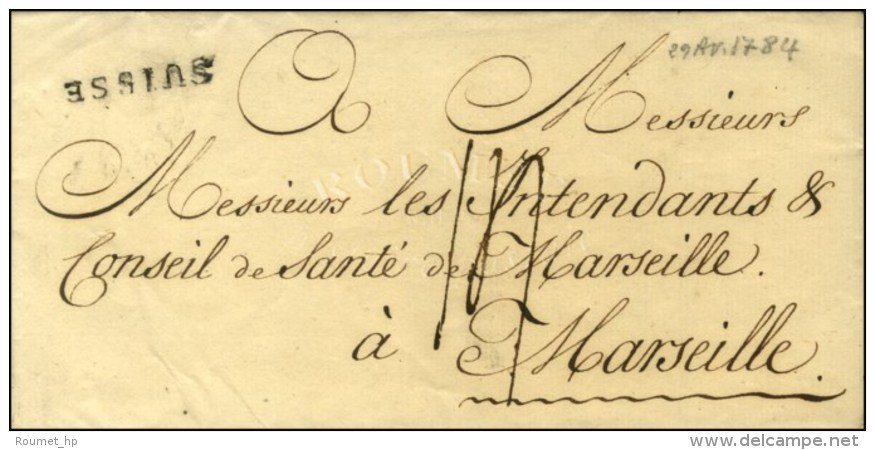 29 Av. 1784
SUISSE
A Messieurs
Messieurs les Intendants &
Conseil de Santé de Marseille.
à Marseille.
Roumet_hp
www.delcampe.net